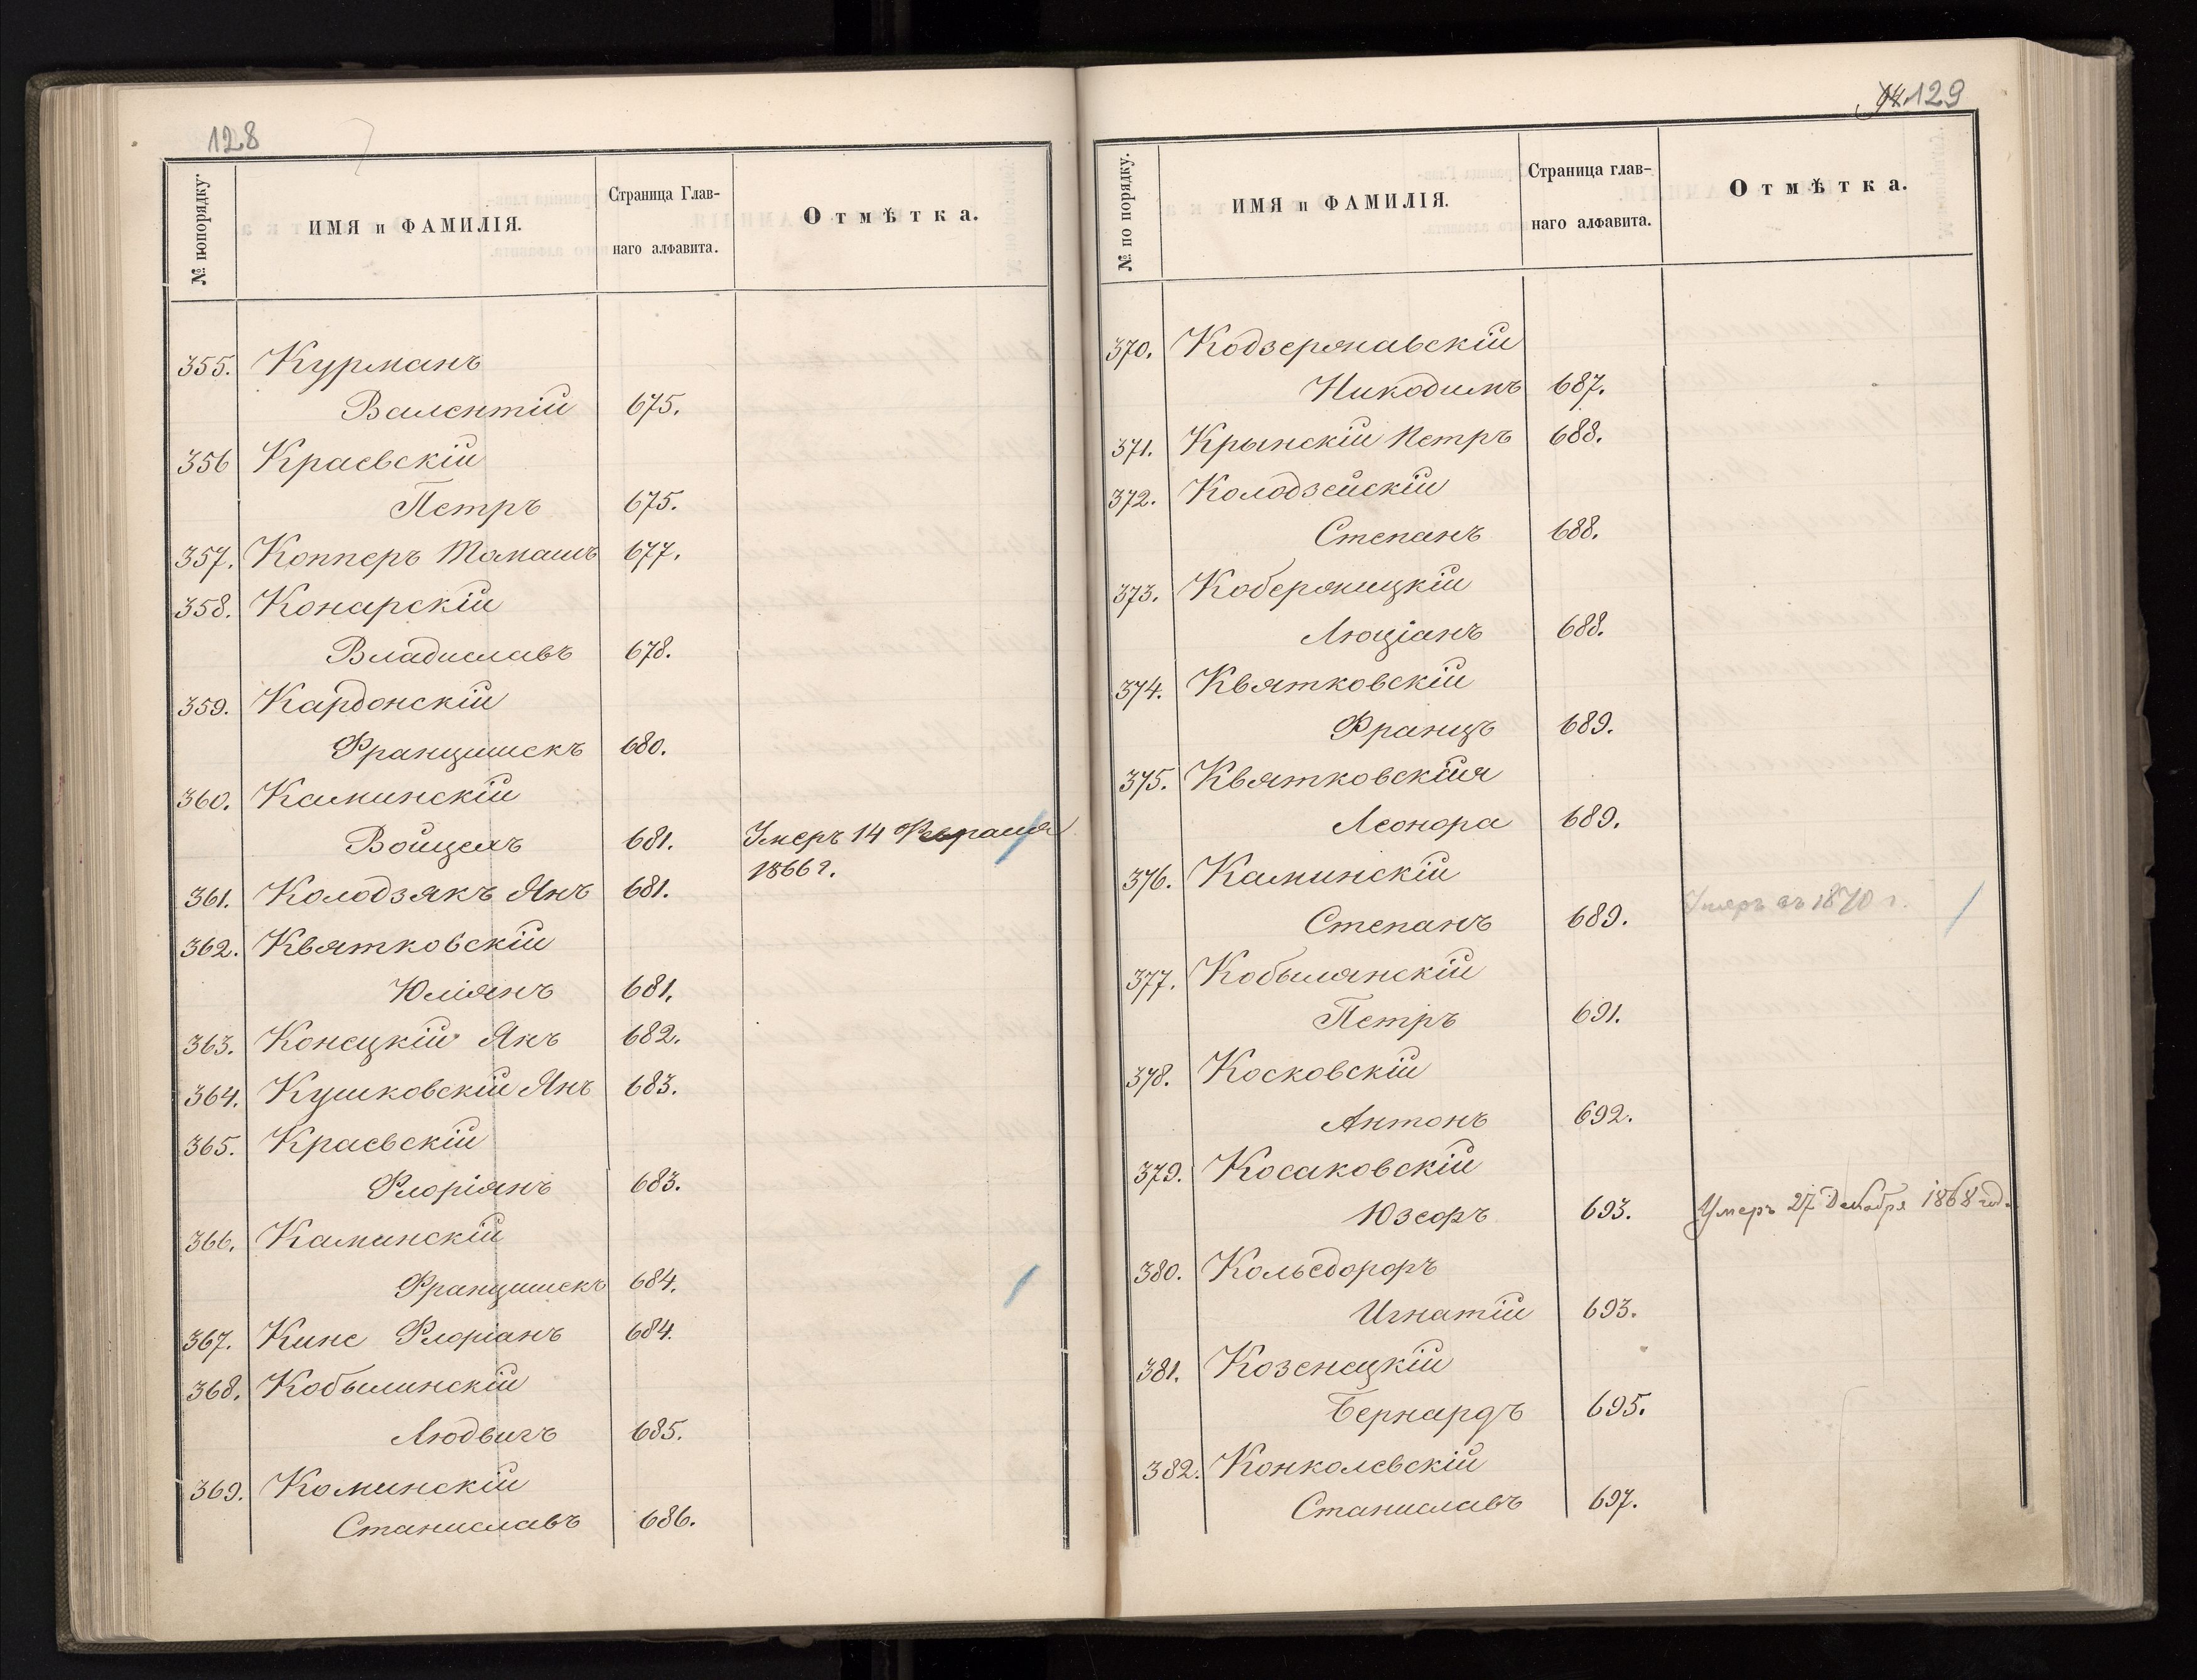 128
№ по порядку.
ИМЯ и ФАМИЛІЯ.
Страница Глав-
наго алфавита.
Отмѣтка.
355. Курманъ
Валентій 675.
356 Краевскій
Петръ 675.
357. Копперъ Томашъ 677.
358. Конарскій
Владиславъ 678.
359. Кардонскій
Францишекъ 680.
360. Каминскій
Войцехъ 681. Умеръ 14 Февраля
1866 г.
361. Колодзякъ Янъ 681.
362. Квятковскій
Юліянъ 681.
363. Конецкій Янъ 682.
364. Кушковскій Янъ 683.
365. Краевскій
Флоріянъ 683.
366. Каминскій
Францишекъ 684.
367. Кинс Флоріанъ 684.
368. Кобылинскій
Людвигъ 685.
369. Коминскій
Станиславъ 686.
129
№ по порядку.
ИМЯ и ФАМИЛІЯ.
Страница глав-
наго алфавита.
Отмѣтка.
370. Кодзержавскій
Никодимъ 687.
371. Крынскій Петръ 688.
372. Колодзейскій
Степанъ 688.
373. Кобержицкій
Люціанъ 688.
374. Квятковскій
Францъ 689.
375. Квятковскія
Леонора 689.
376. Каминскій
Степанъ 689. Умеръ въ 1870 г.
377. Кобылянскій
Петръ 691.
378. Косковскій
Антонъ 692.
379. Косаковскій
Юзефъ 693. Умеръ 27 Декабря 1868 год.
380. Кольсдорфъ
Игнатій 693.
381. Козенецкій
Бернардъ 695.
382. Конколевскій
Станиславъ 697.